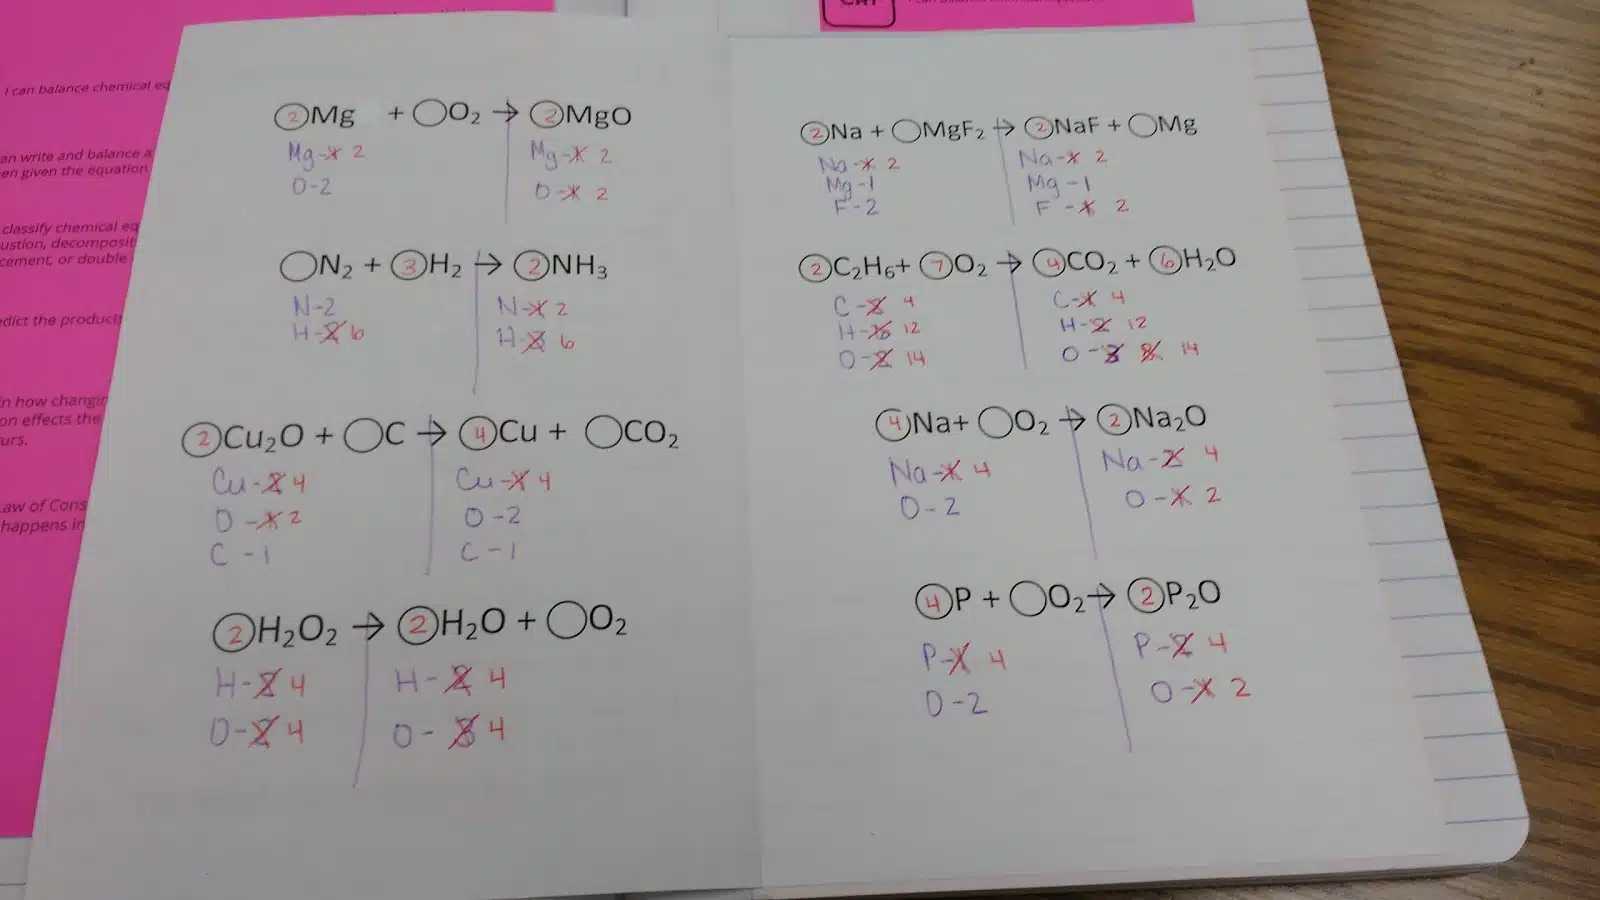 I can balance chemical eq
an write and balance a
en given the equation
classify chemical eq
ustion, decomposit
cement, or double
edict the product
n how changin
on effects the
urs.
Law of Cons
happens in
②Mg + ○O₂ → ②MgO
Mg-1 2 Mg-1 2
O-2 O-1 2
○N₂ + ③H₂ → ②NH₃
N-2 N-1 2
H-2 6 H-3 6
②Cu₂O + ○C → ④Cu + ○CO₂
Cu-2 4 Cu-1 4
O-1 2 O-2
C-1 C-1
②H₂O₂ → ②H₂O + ○O₂
H-2 4 H-2 4
O-2 4 O-3 4
②Na + ○MgF₂ → ②NaF + ○Mg
Na-1 2 Na-1 2
Mg-1 Mg-1
F-2 F-1 2
②C₂H₆+ ⑦O₂ → ④CO₂ + ⑥H₂O
C-2 4 C-1 4
H-6 12 H-2 12
O-2 14 O-3 8 14
④Na+ ○O₂ → ②Na₂O
Na-1 4 Na-2 4
O-2 O-1 2
④P + ○O₂→ ②P₂O
P-1 4 P-2 4
O-2 O-1 2